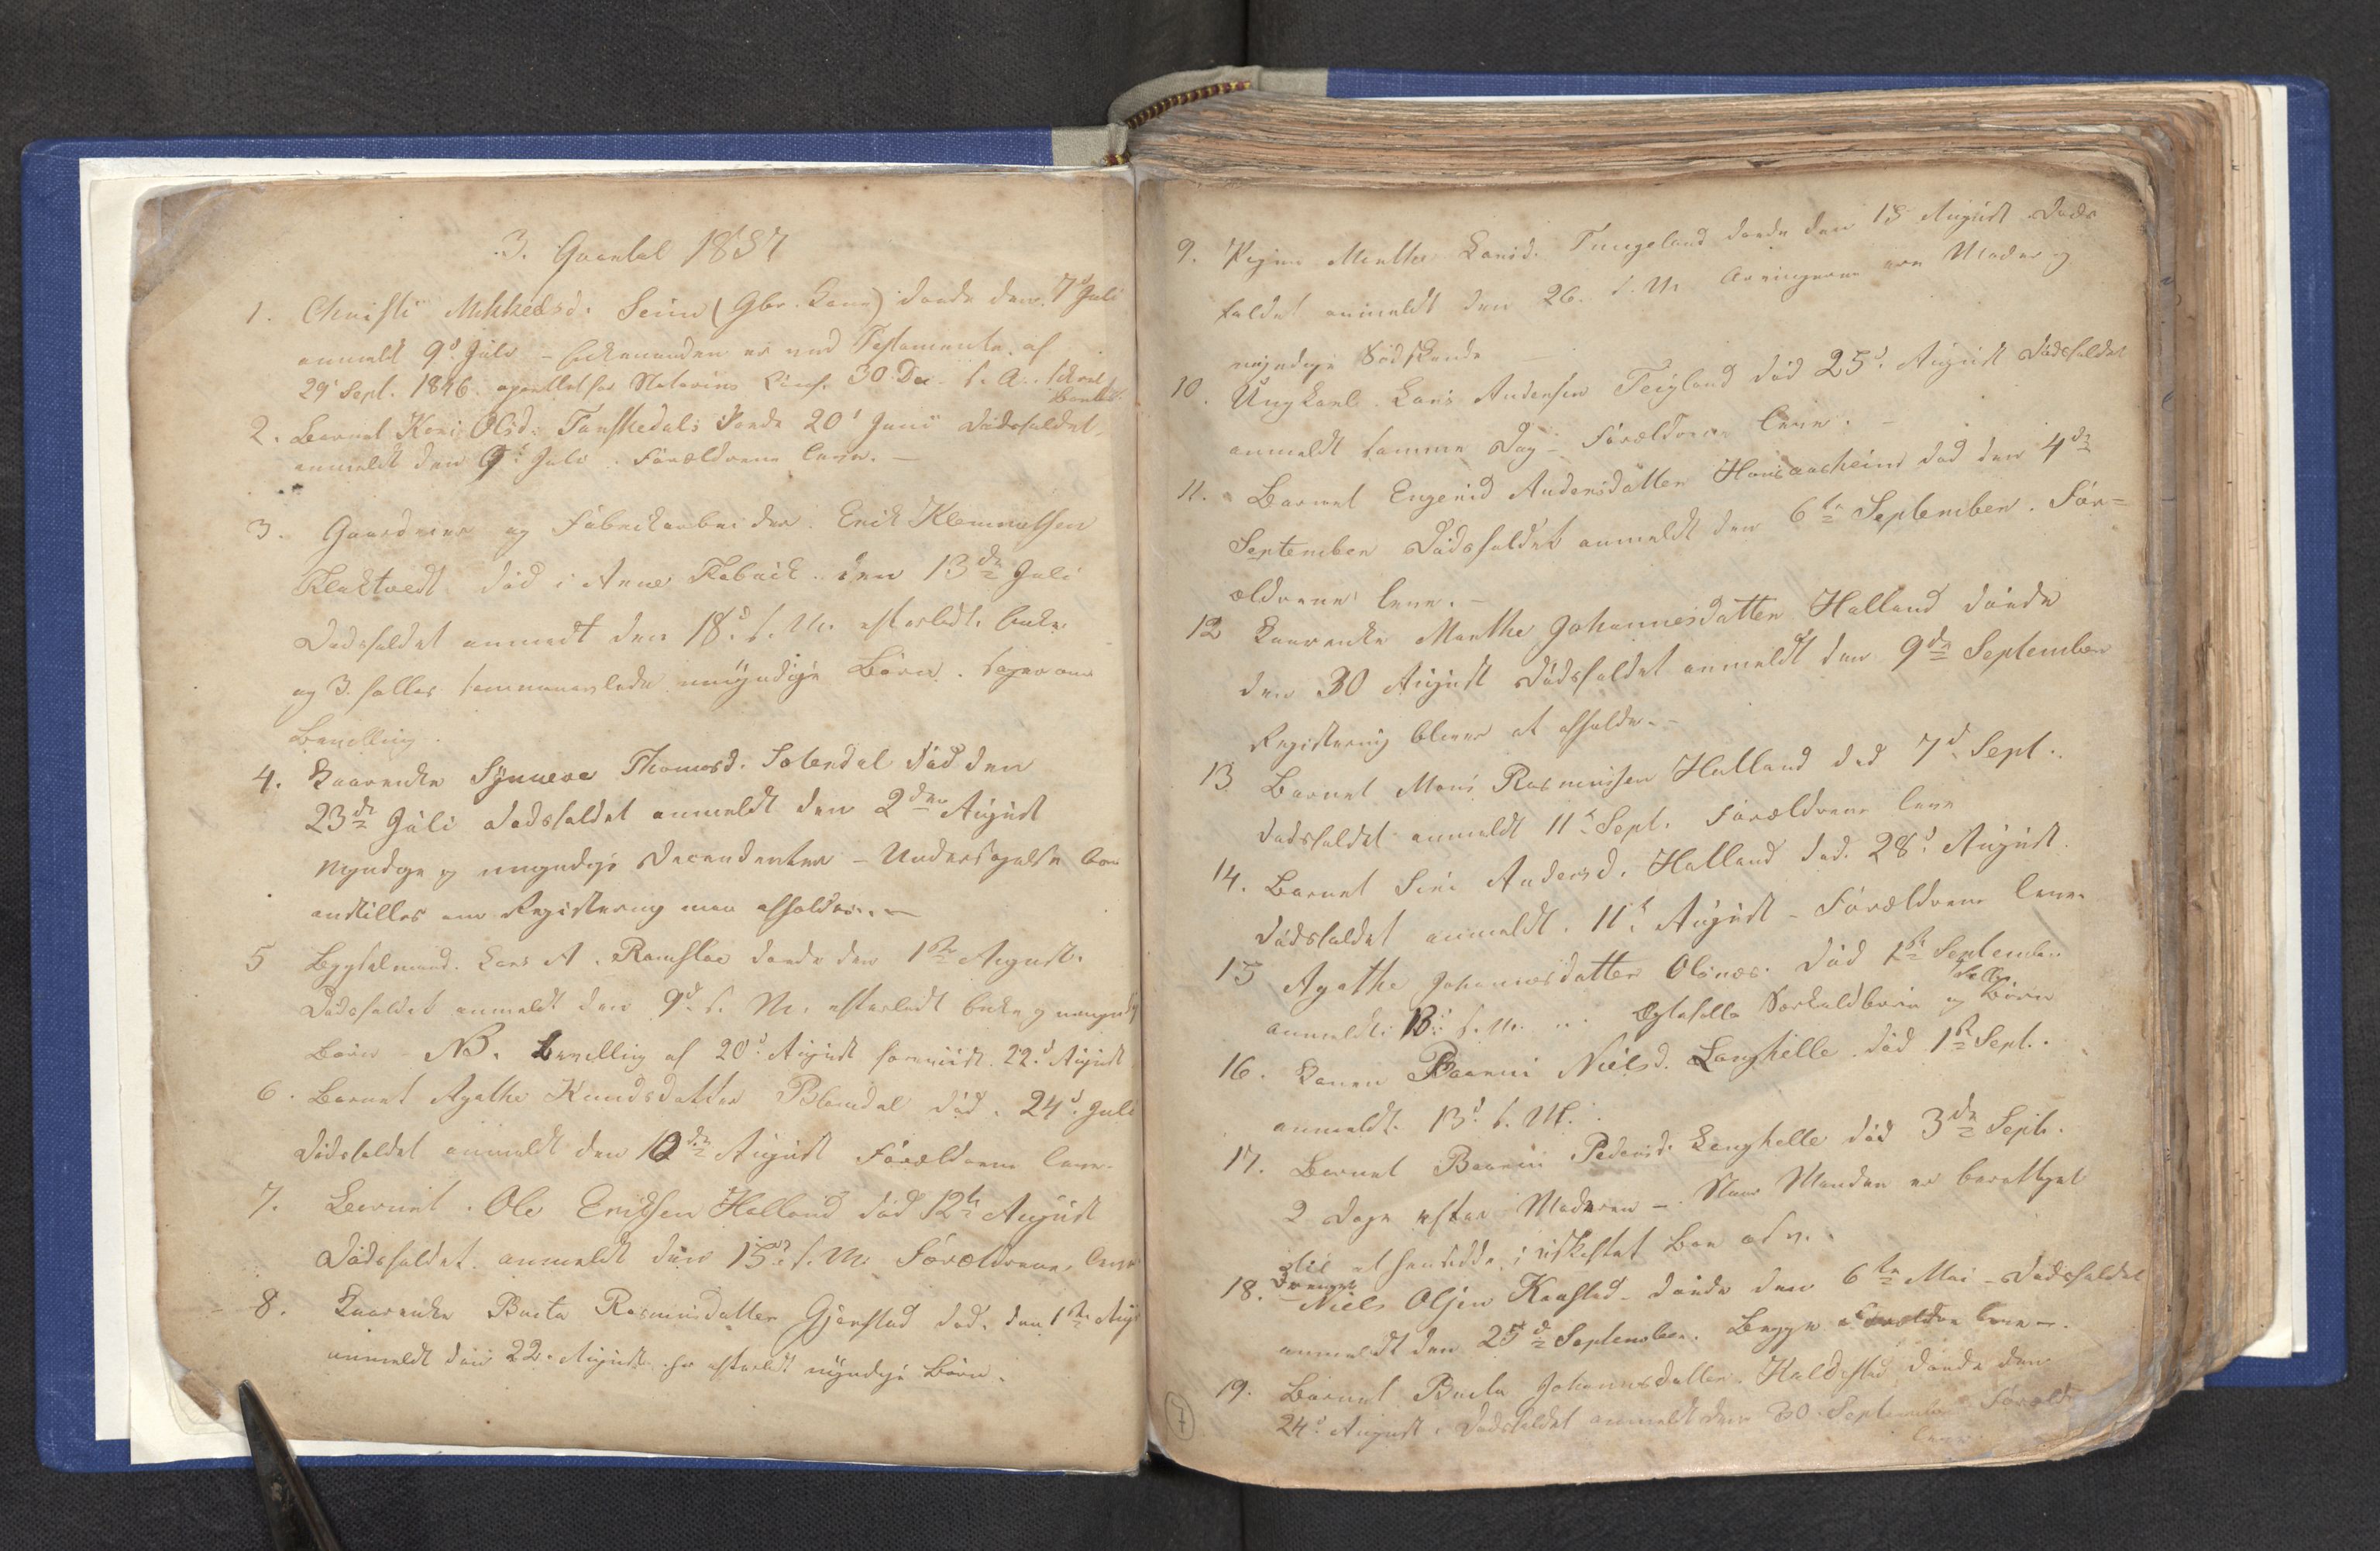 3. Qvartal 1857
1. Christi Mikkelsd. Seim (Gbr. Kone) døde den 7d Juli
anmeldt 9d Juli – Enkemanden er ved Testamente af
29d Sept. 1846 oprettet for Notarius 30 Dec. s. A.
2. Barnet Kari Olsd. Tanskedal døde 20d Juni Dødsfaldet
anmeldt den 9d Juli. Forældrene leve. –
3. Gaardeier og Fabrikarbeider Erik Klemmetsen
Flaktvedt død i Arne Fabrik den 13de Juli
Dødsfaldet anmeldt den 18d s. M. efterladt Enke
og 3 fælles sammenavlede umyndige Børn. søger om
Bevilling.
4. Kaarenke Synneve Thomasd. Solendal død den
23de Juli Dødsfaldet anmeldt den 2den August
Myndige og umyndige Decendenter – Undersøgelse bør
anstilles om Registrering maa afholdes. –
5 Bygselmand Lars A. Ramslae døde den 1ste August.
Dødsfaldet anmeldt den 9d s. M. efterladt Enke og umyndige
Børn – NB. Bevilling af 20d August foreviist 22d August
6. Barnet Agathe Knudsdatter Blendal død 24d Juli
Dødsfaldet anmeldt den 10de August Forældrene leve.
7. Barnet Ole Eriksen Halland død 12te August
Dødsfaldet anmeldt den 15de s. M. Forældrene leve
8. Kaarenke Barta Rasmusdatter Gjerstad død den 1ste Aug
anmeldt den 22 August har efterladt myndige Børn.
9. Pigen Marthe Larsd. Tungeland døde den 13 August Døds
faldet anmeldt den 26. s. M. Arvingerne ere Moder og
myndige Sødskende –
10. Ungkarl Lars Andersen Teigland død 25d August Dødsfaldet
anmeldt samme Dag – Forældrene leve. –
11. Barnet Engerid Andersdatter død den 4de
September Dødsfaldet anmeldt den 6te September. For=
ældrene leve. –
12 Kaarenke Marthe Johannesdatter Halland døde
den 30 August Dødsfaldet anmeldt den 9de September
Registrering bliver at afholde. –
13 Barnet Mons Rasmussen Halland død 7d Sept.
Dødsfaldet anmeldt 11te Sept. Forældrene leve
14. Barnet Siri Andersd. Halland død 28d August.
Dødsfaldet anmeldt 11te August – Forældrene leve.
15 Agathe Johannesdatter Olsnes død 1ste September
anmeldt 13d s. M. Ægtefælle Særkuldbørn og fælles Børn
16. Konen Baarni Nielsd. Langhelle død 1ste Sept.
anmeldt 13d s. M.
17. Barnet Baarni Pedersd. Langhelle død 3de Sept.
2 Dage efter Moderen – Naar Manden er berettiget
til at hensidde i uskiftet Bo osv.
18. Drengen Niels Olsen Kaastad døde den 6te Mai – Dødsfaldet
anmeldt den 25de September. Begge Forældre leve –
19. Barnet Barta Johannesdatter Haldestad døde den
24d August, Dødsfaldet anmeldt den 30 September Forældr
leve
7